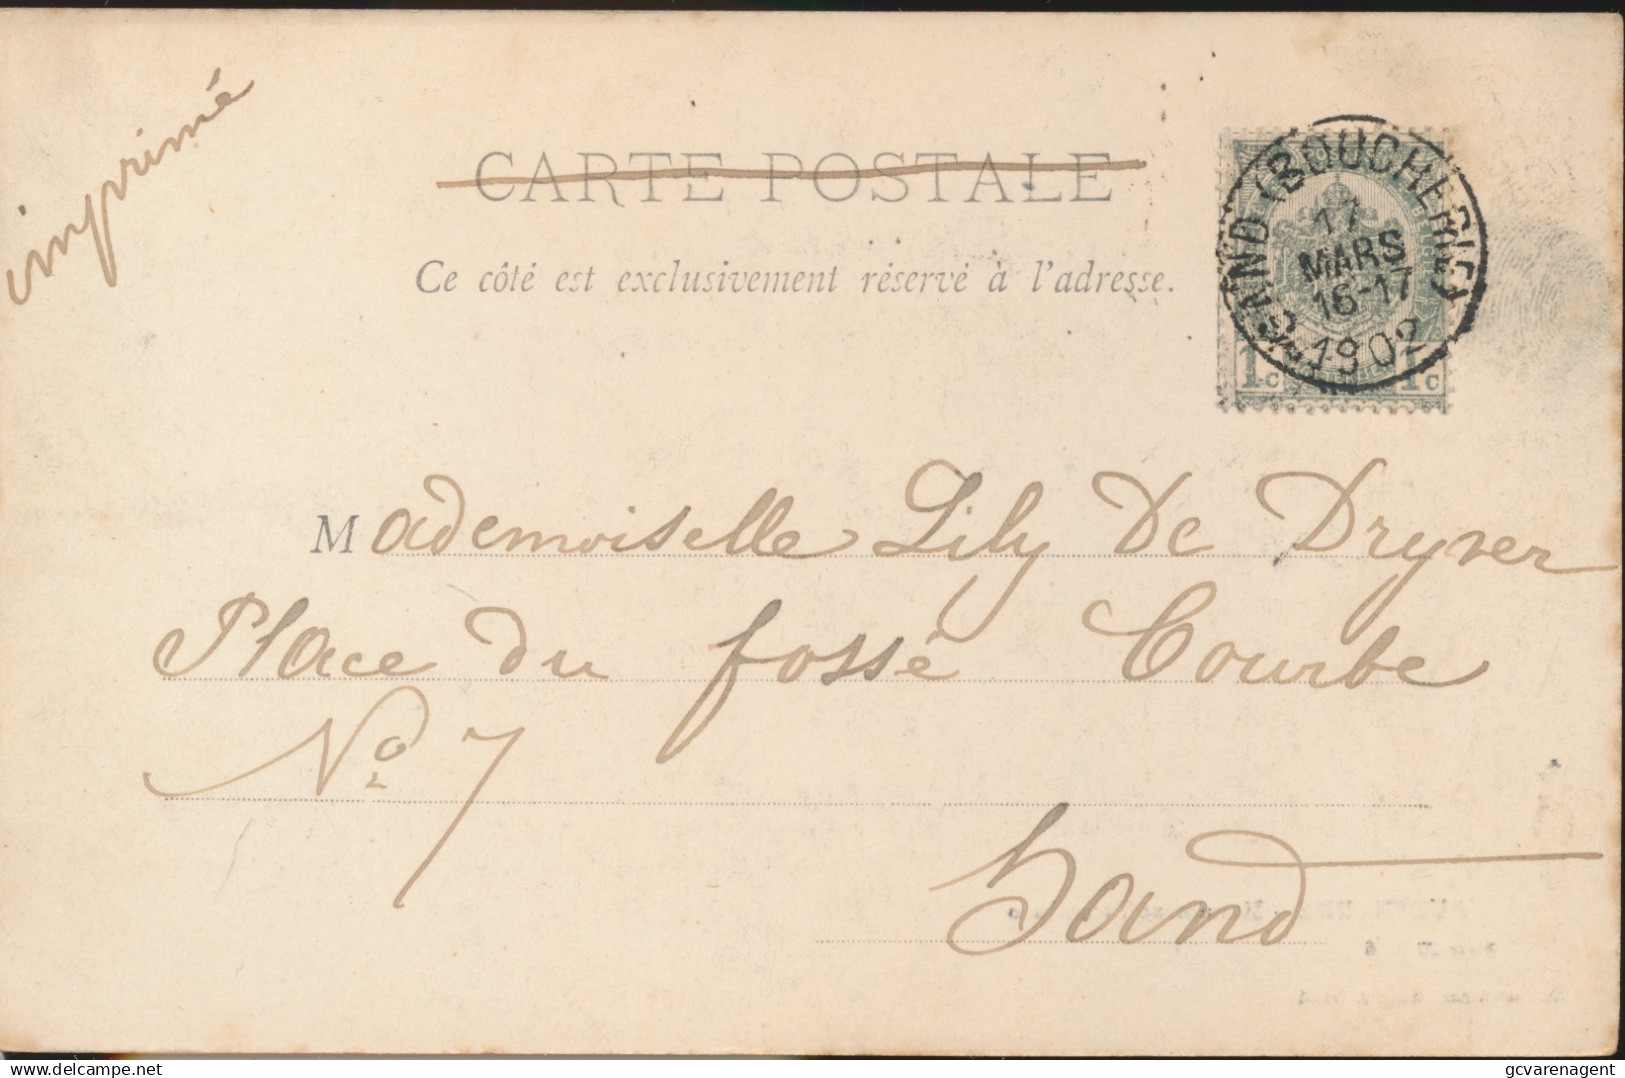 imprimé
CARTE POSTALE
Ce côté est exclusivement réservé à l'adresse.
GAND (BOUCHERIE)
17
MARS
16-17
1902
1c 1c
Mademoiselle Lily De Dryver
Place du fossé Courbe
No 7
Gand
delcampe.net
gcvarenagent